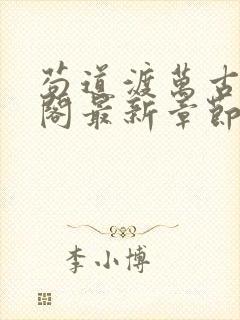 苟道渡萬古
閣最新章節
李小博